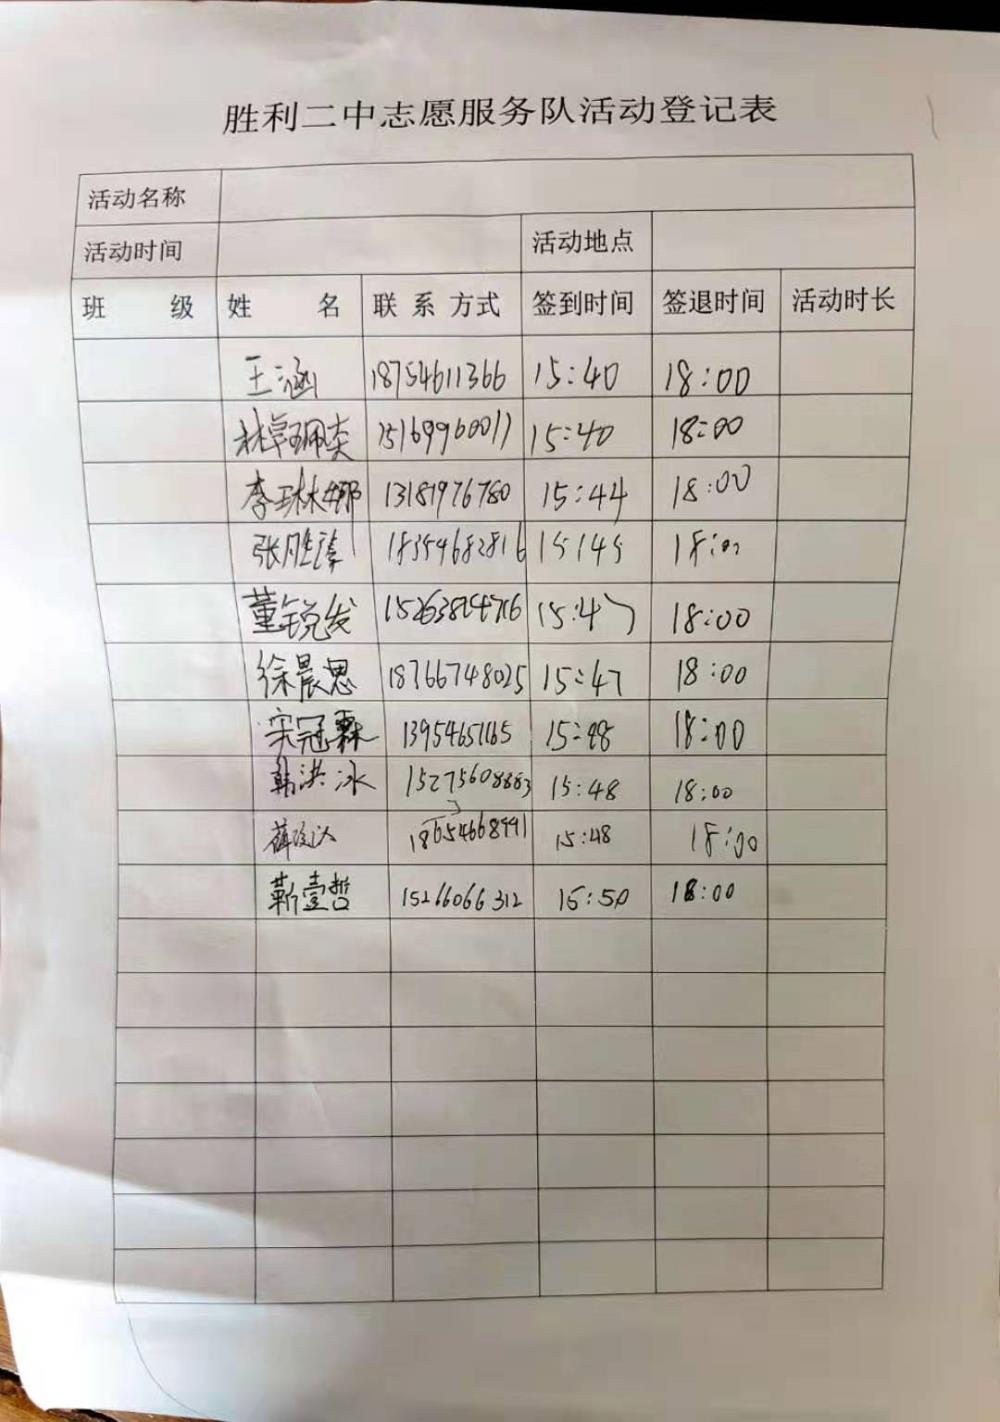 胜利二中志愿服务队活动登记表
活动名称
活动时间 活动地点
班 级 姓 名 联系方式 签到时间 签退时间 活动时长
王涵 18754611366 15:40 18:00
林卓珮奕 15169960011 15:40 18:00
李琳娜 13181976780 15:44 18:00
张胜臻 18354682816 15:45 18:00
董锐发 15:47 18:00
徐晨思 18766748025 15:47 18:00
宋冠霖 13954651165 15:48 18:00
韩洪冰 15275608883 15:48 18:00
薛 18654668991 15:48 18:00
靳壹哲 15266066312 15:50 18:00